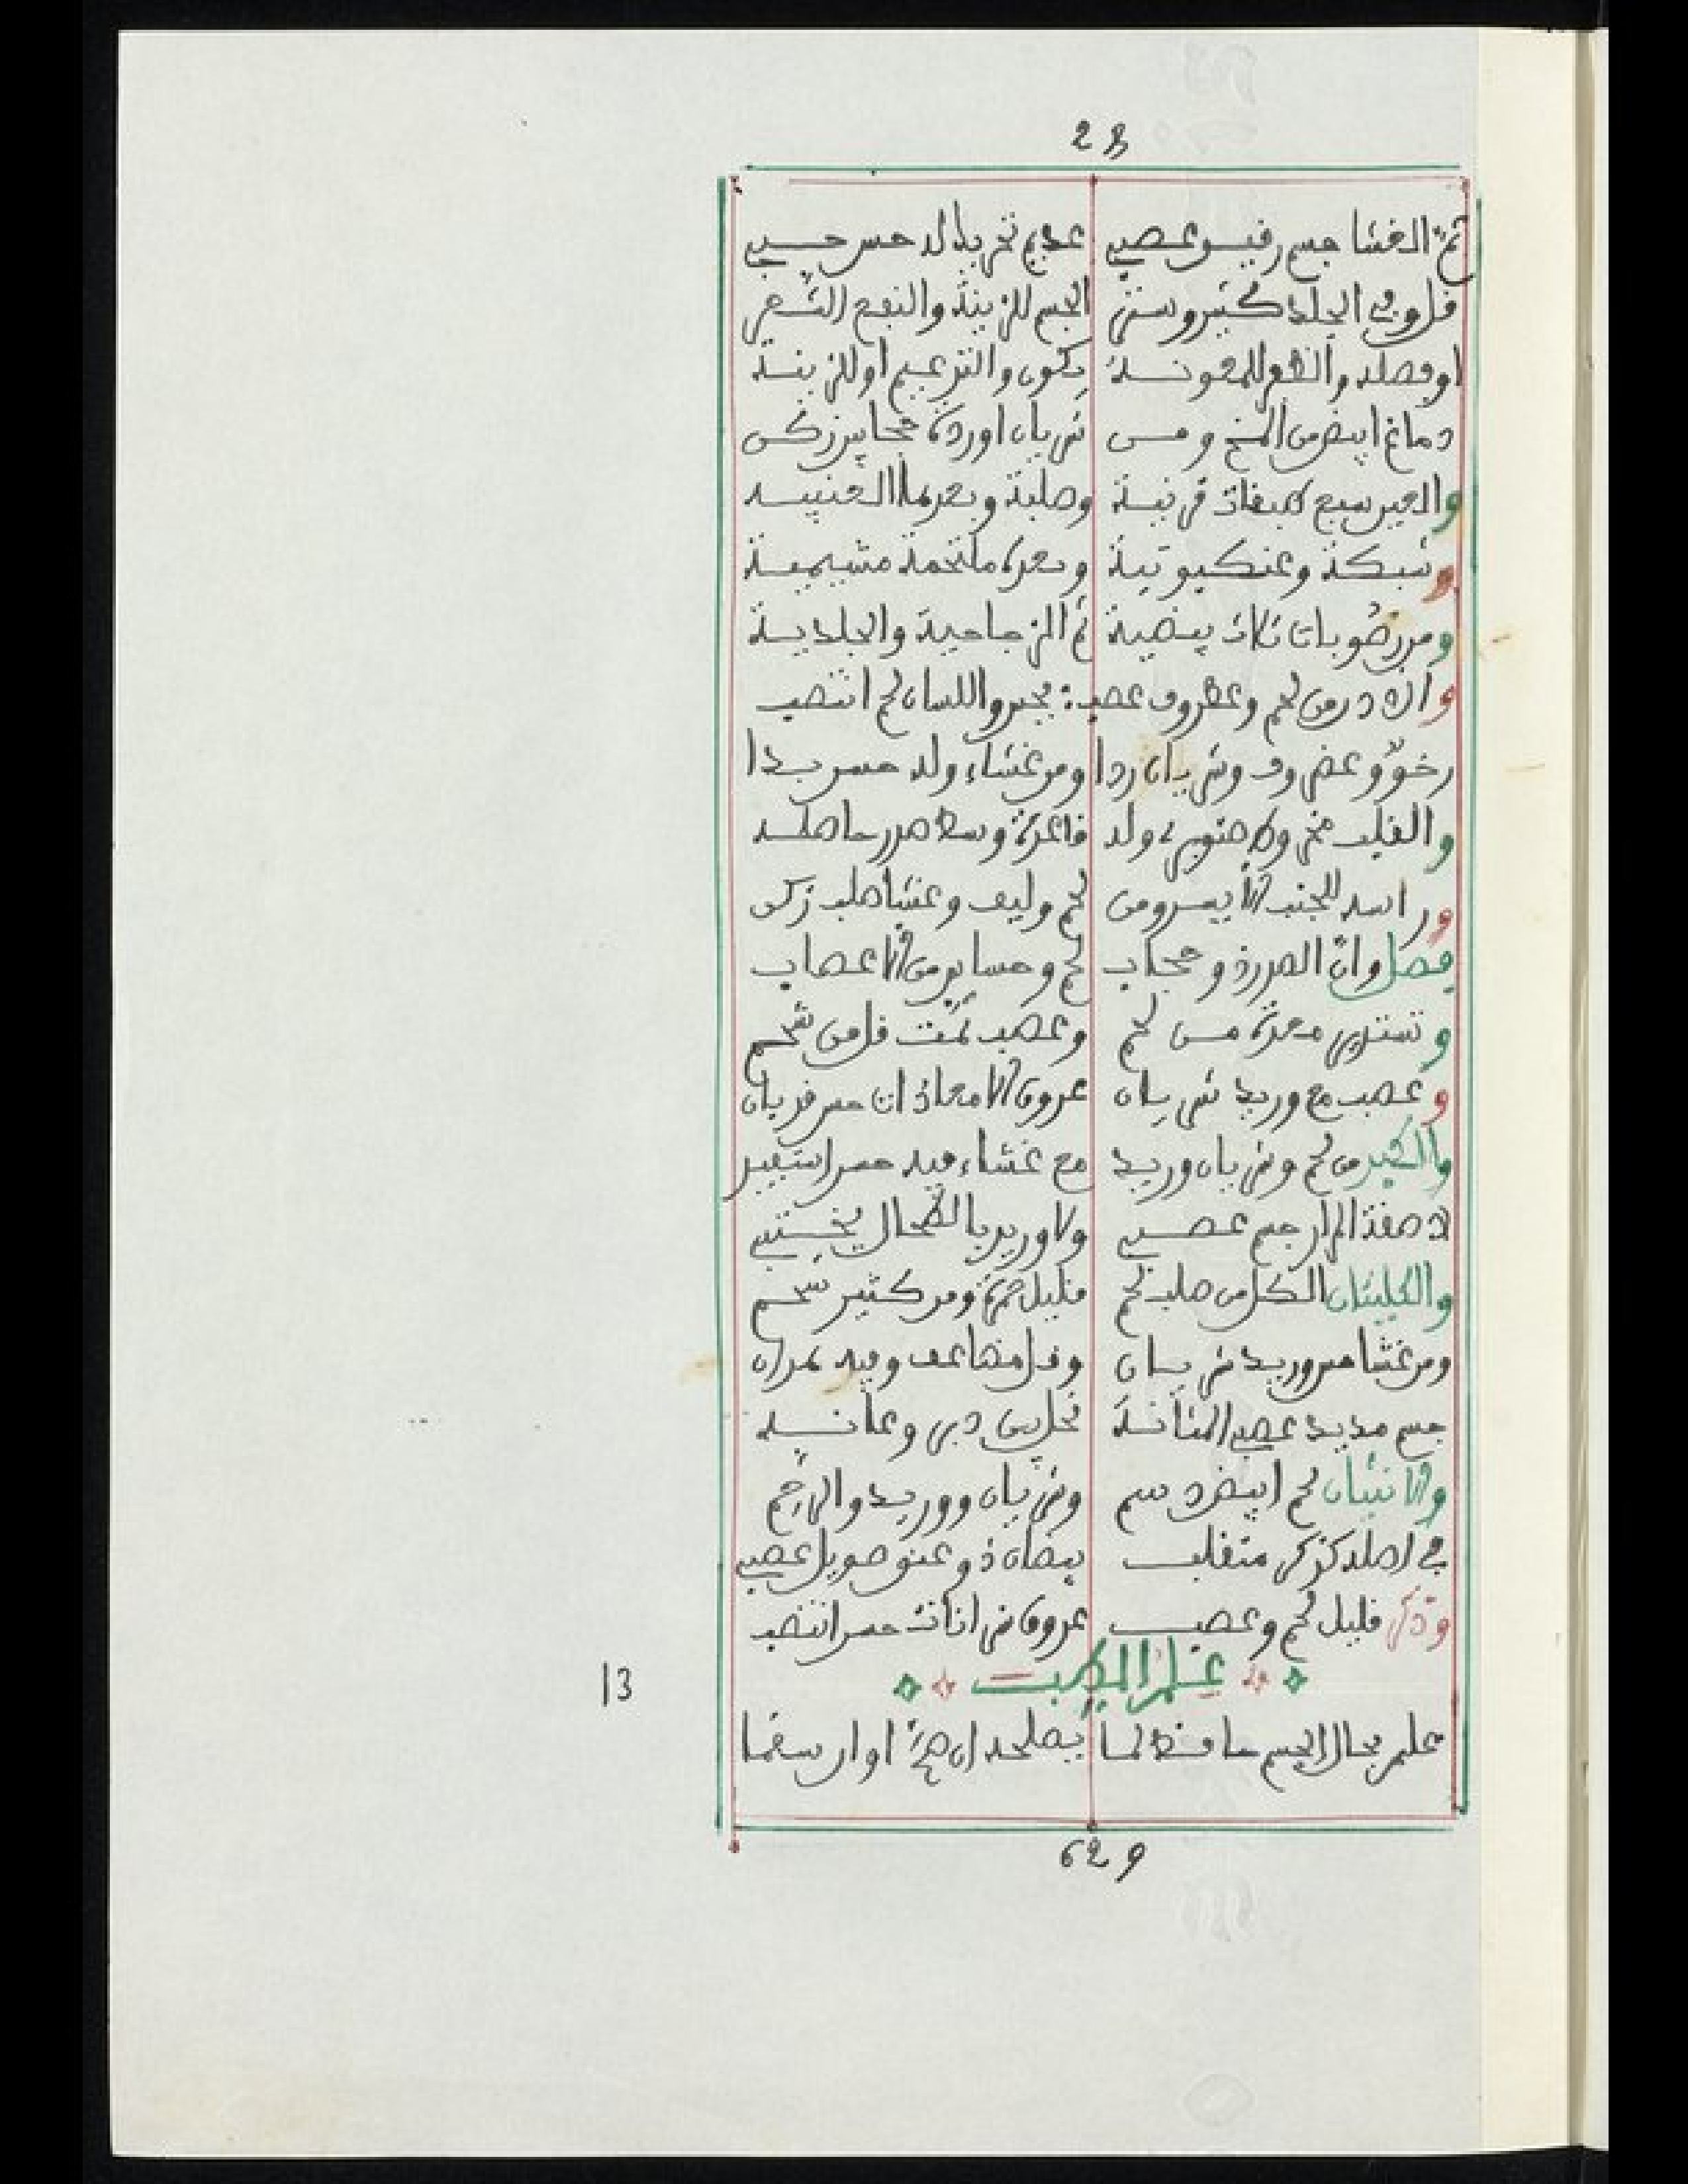 28
ثم الغشا جسم رفيو عصبي عديم تحريك له حس حسبي
فل وفي الجلد كثير وستر الجسم للزينة والنفع الشعر
او فصله والظفر للمعونة يكون والتزعيم او للزينة
دماغ ابيض من المخ ومن شريان اوردة حجابين زكن
والعين سبع طبقات قرنية وصلبة وبعدها العنبية
وشبكة وعنكبوتية وبعده ملتحمة مشيمية
ومن رطوبات ثلاث بيضية ثم الزجاجية والجلدية
والاذن من لحم وغظروف عصب : بحس واللسان لحم انتصب
رخو وغضروف وشريان ردا ومن غشاء وله حس بدا
والقلب مخروط صنوبري وله قاعدة وسط صدر حاصله
وراسه للجنب الايسر ومن لحم وليف وغشا صلب زكن
فصل وان الصدر ذو حجاب لحم وحسا بر من الاعصاب
وتستدير معدة من لحم وعصب نمت فل من شحم
وعصب مع وريد شريان عروق الامعا ذات حس فربان
والكبد من لحم وشريان وريد مع غشاء فيه حس استفيد
لاصقة المرار جسم عصبي ولا وريد بالطحال يختبي
والكليتان الكل من صلب لحم قليل حمرة ومن كثير شحم
ومن غشا من وريد شريان وفل مضاعف وفيه عمران
جسم مديد عصبي المثانة محل بين دبر وعانة
والانثيان لحم ابيض دسم وشريان ووريد والرحم
في اصله كذكر منقلب بيضان ذو عنق طويل عصبي
وذكر قليل لحم وعصب عروق شريانات حس انتصب
علم الطب
13
علم بحال الجسم حافظ لما بصلحه ان صحة او ان سقما
629